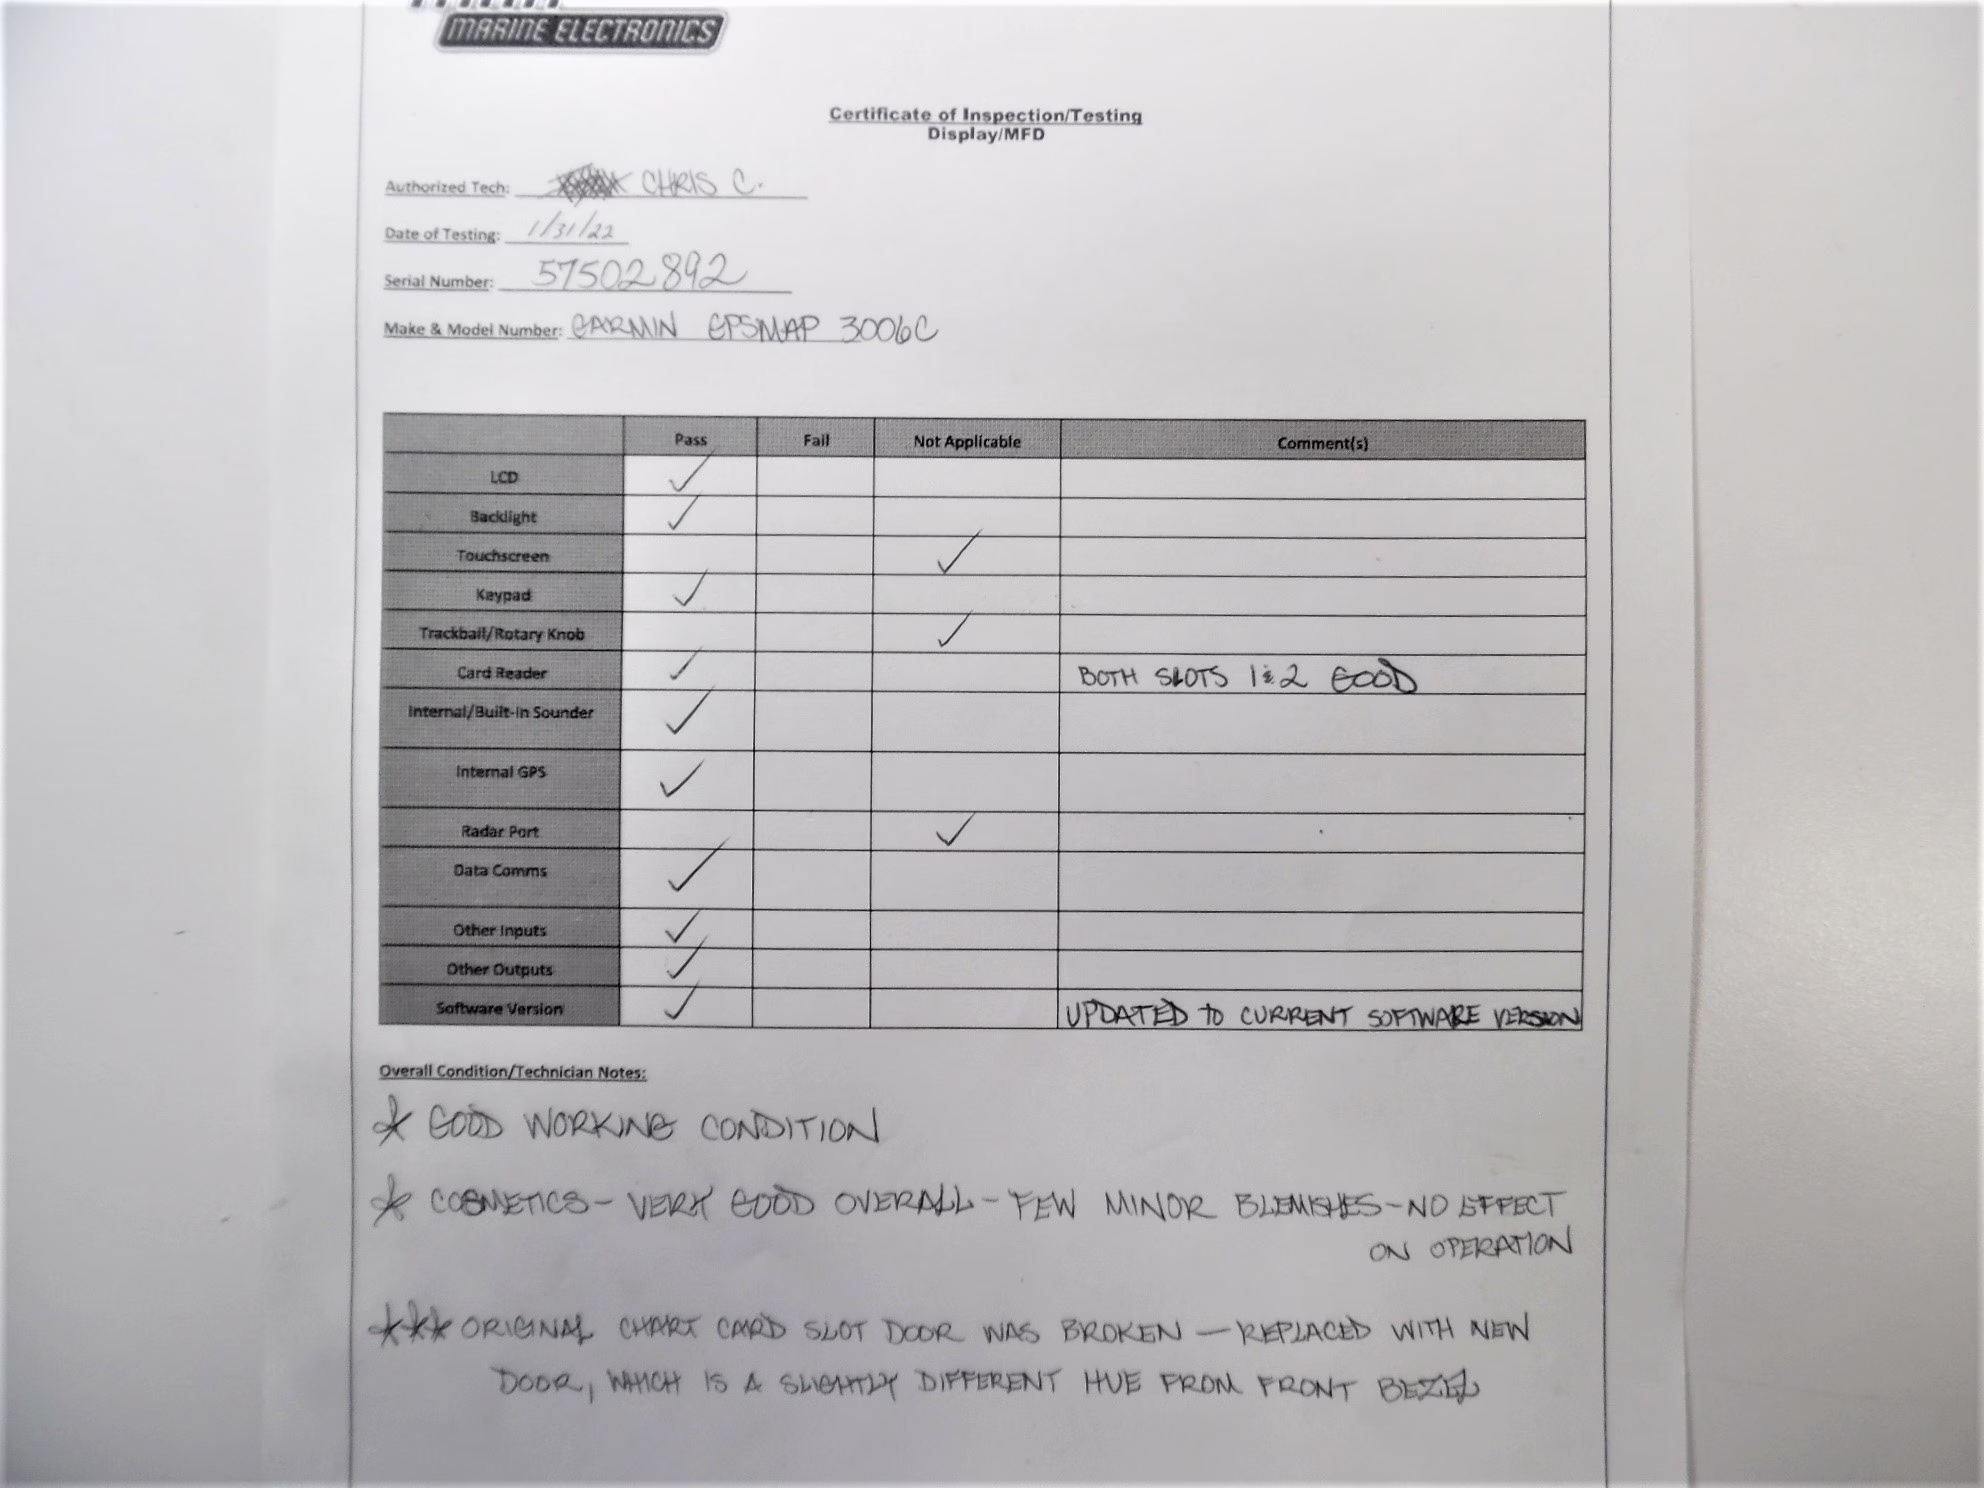 MARINE ELECTRONICS
Certificate of Inspection/Testing
Display/MFD
Authorized Tech: CHRIS C.
Date of Testing: 1/31/22
Serial Number: 57502892
Make & Model Number: GARMIN GPSMAP 3006C
Pass Fail Not Applicable Comment(s)
LCD ✓
Backlight ✓
Touchscreen ✓
Keypad ✓
Trackball/Rotary Knob ✓
Card Reader ✓ BOTH SLOTS 1 & 2 GOOD
Internal/Built-in Sounder ✓
Internal GPS ✓
Radar Port ✓
Data Comms ✓
Other Inputs ✓
Other Outputs ✓
Software Version ✓ UPDATED TO CURRENT SOFTWARE VERSION
Overall Condition/Technician Notes:
* GOOD WORKING CONDITION
* COSMETICS - VERY GOOD OVERALL - FEW MINOR BLEMISHES - NO EFFECT
ON OPERATION
*** ORIGINAL CHART CARD SLOT DOOR WAS BROKEN - REPLACED WITH NEW
DOOR, WHICH IS A SLIGHTLY DIFFERENT HUE FROM FRONT BEZEL